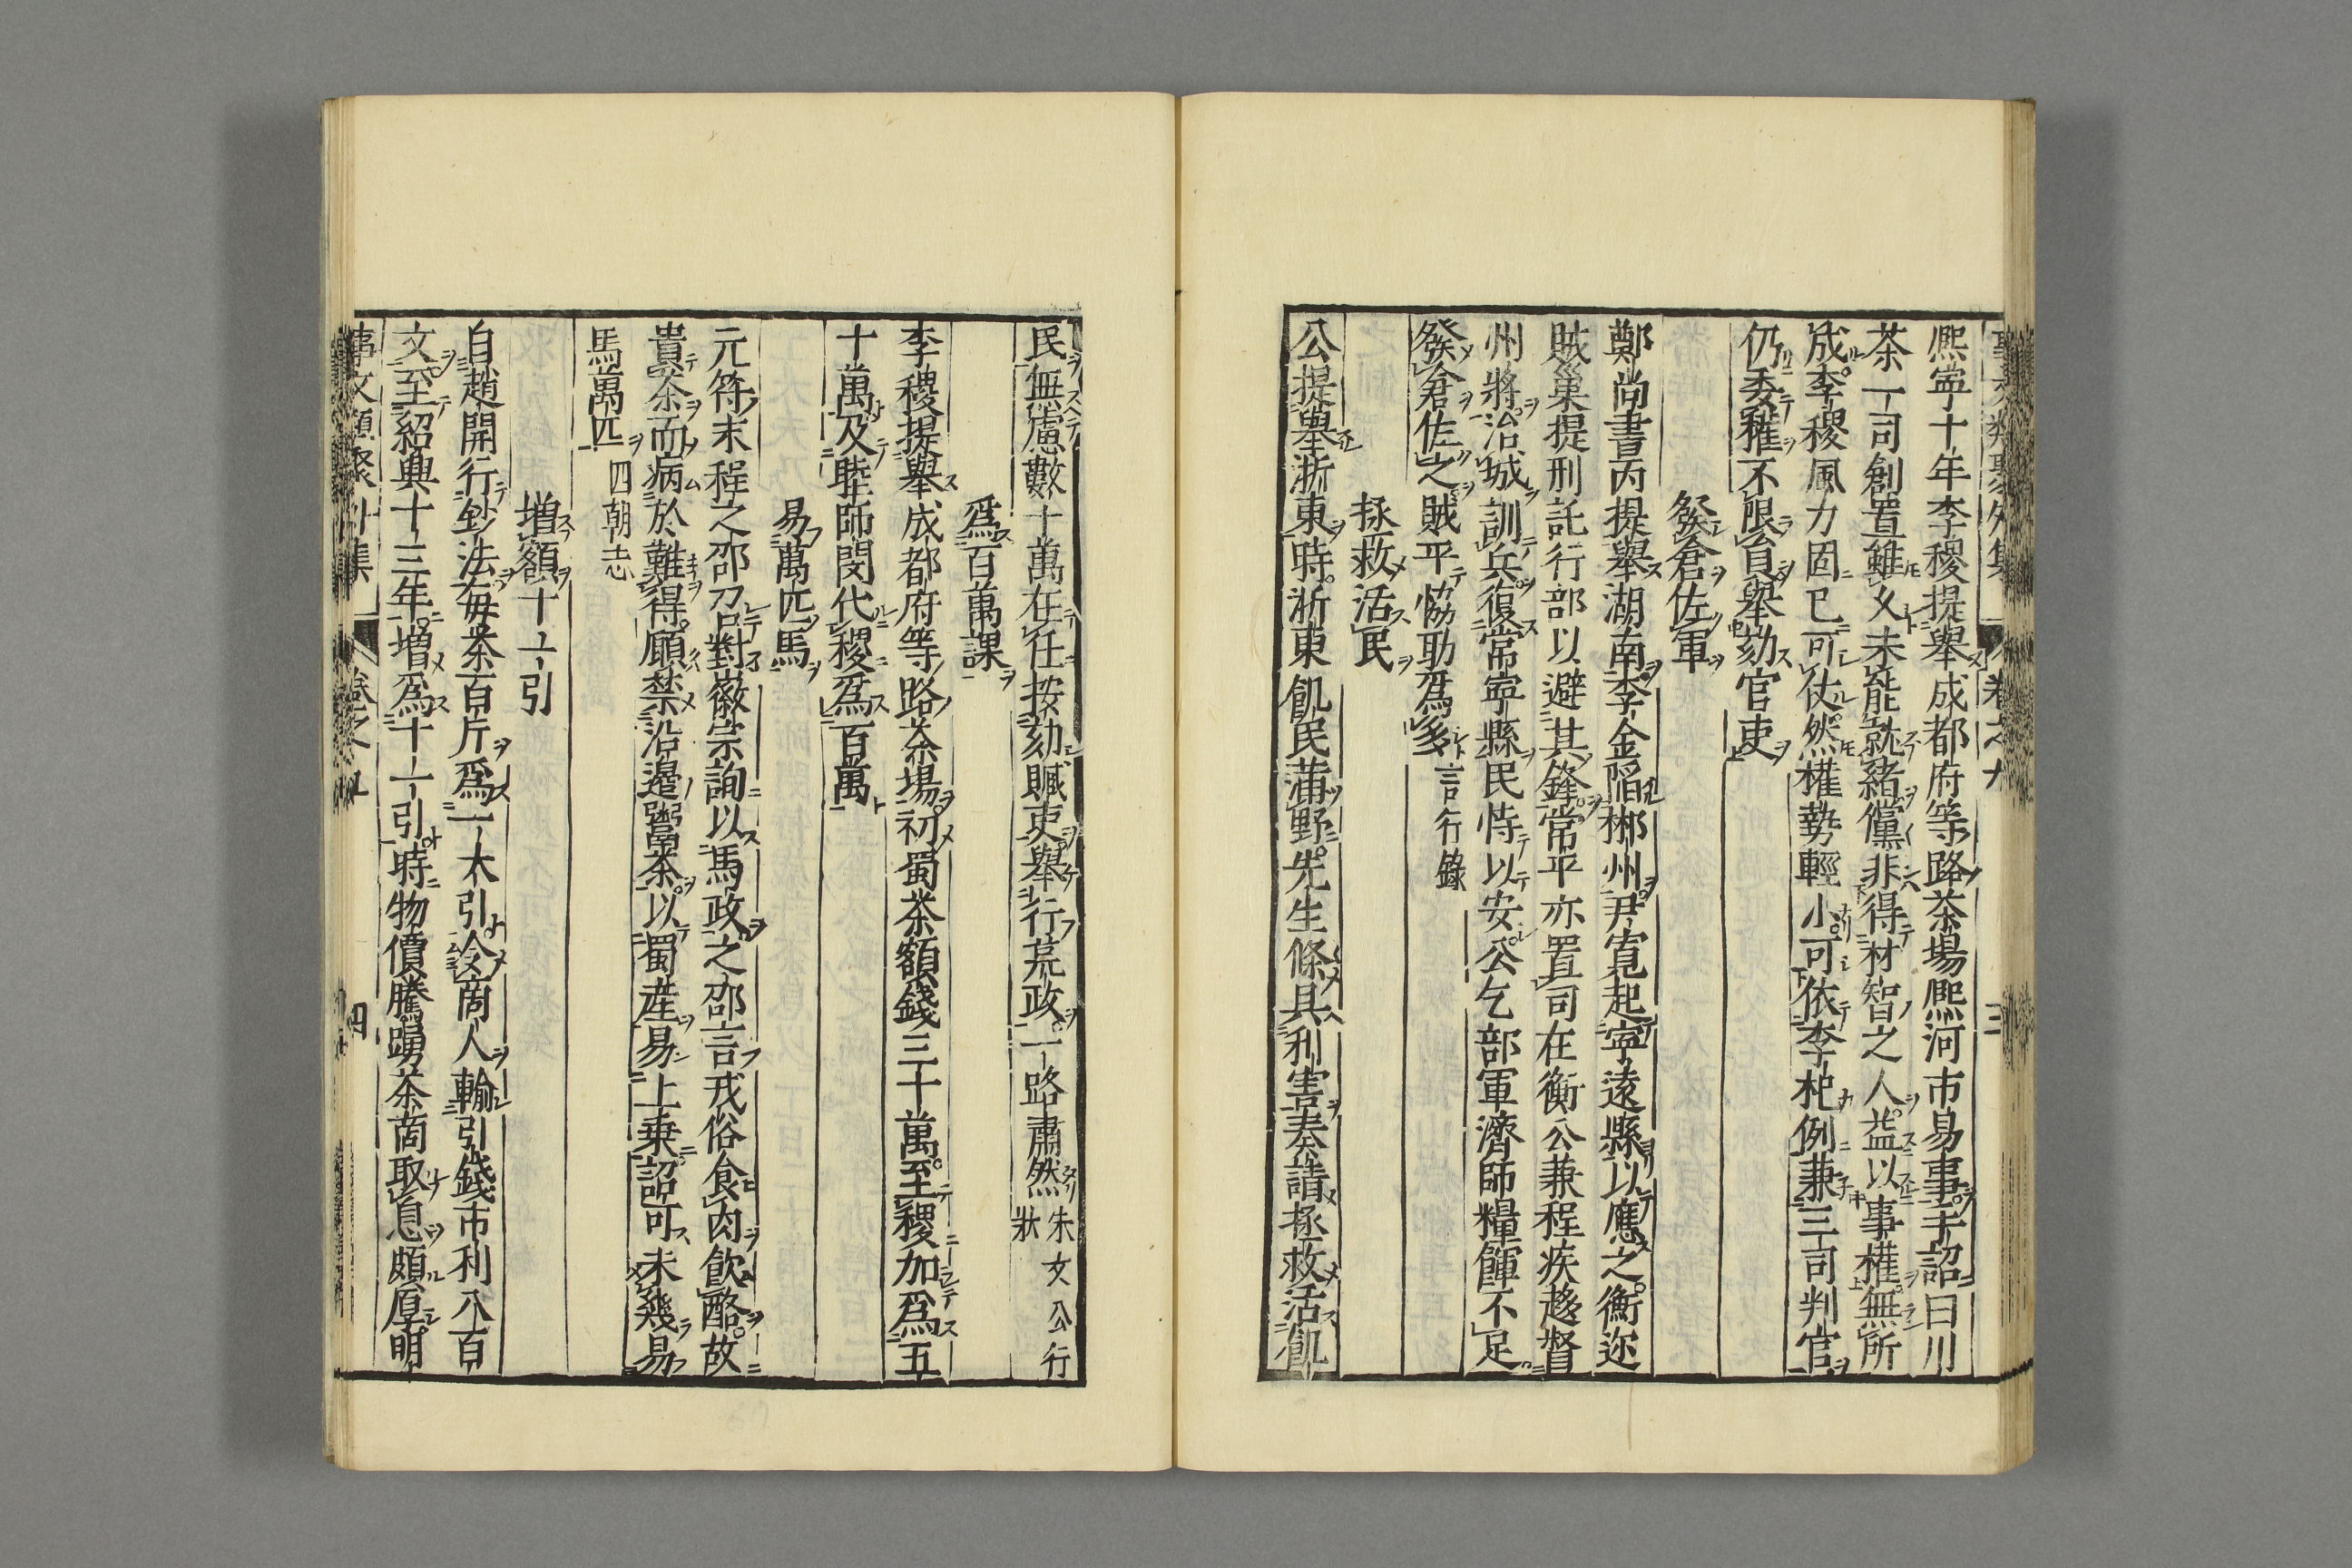 熈寧十年李稷提舉成都府等路茶塲熈河市易事手詔曰川
茶一司創置雖乆未能就緒儻非得材智之人益以事權無所
成李稷風力固已可仗然權勢輕小可依李杞例兼三司判官
仍委稚不限員舉劾官吏
發倉佐軍
鄭尚書丙提舉湖南李金陷郴州尹寛起寧遠縣以應之衡迩
賊巢提刑託行部以避其鋒常平亦置司在衡公兼程疾趍督
州將治城訓兵復常寧縣民恃以安公乞部軍濟師糧餫不足
發倉佐之賊平恊助爲多言行錄
拯救活民
公提舉浙東時浙東飢民蒲野先生條具利害奏請拯救活飢
民無慮數十萬在任按劾贓吏舉行荒政一路肅然朱文公行狀
爲百萬課
李稷提舉成都府等路茶塲初蜀茶額錢三十萬至稷加爲五
十萬及陸師閔代稷爲百萬
易萬匹馬
元符末程之邵召對徽宗詢以馬政之邵言戎俗食肉飲酪故
貴茶而病於難得願禁沿邉鬻茶以蜀産易上乗詔可未幾易
馬萬匹四朝志
增額十一引
自趙開行鈔法每茶百斤爲一大引令商人輸引錢市利八百
文至紹興十三年増爲十一引時物價騰踴茶商取息頗厚明